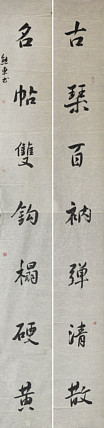 古琹百衲弹清散
名帖雙鈎榻硬黄